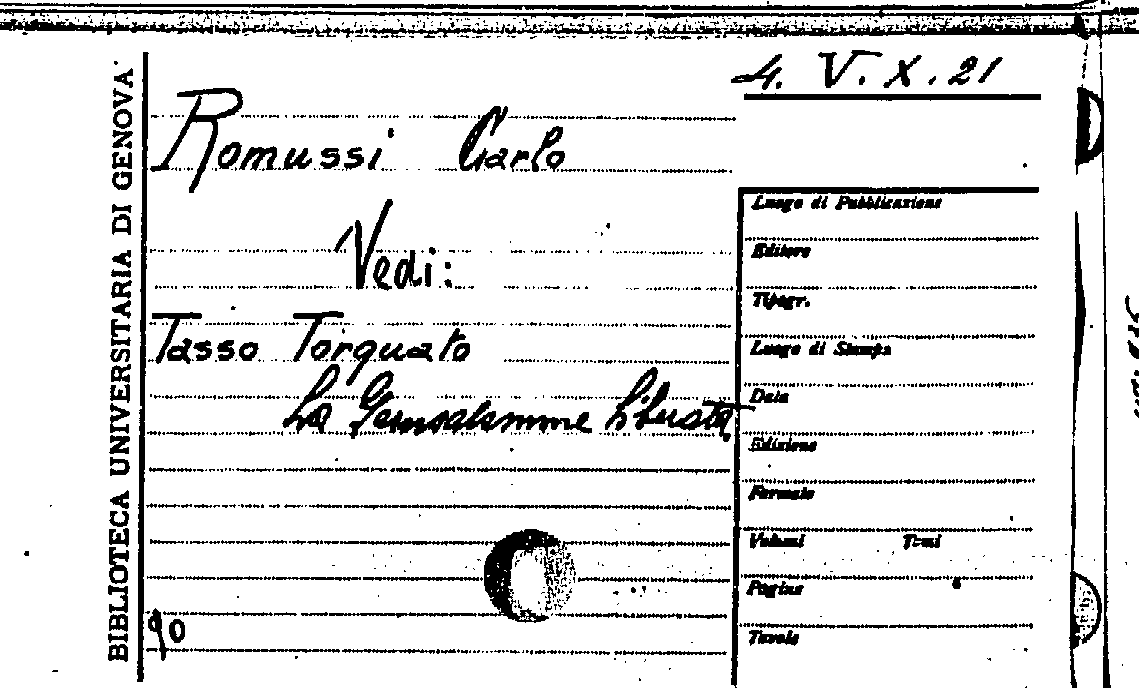 BIBLIOTECA UNIVERSITARIA DI GENOVA
4. V. X. 21
Romussi Carlo
Vedi:
Tasso Torquato
La Gerusalemme Liberata
90
Luogo di Pubblicazione
Editore
Tipogr.
Luogo di Stampa
Data
Edizione
Formato
Volumi Tomi
Pagine
Tavole